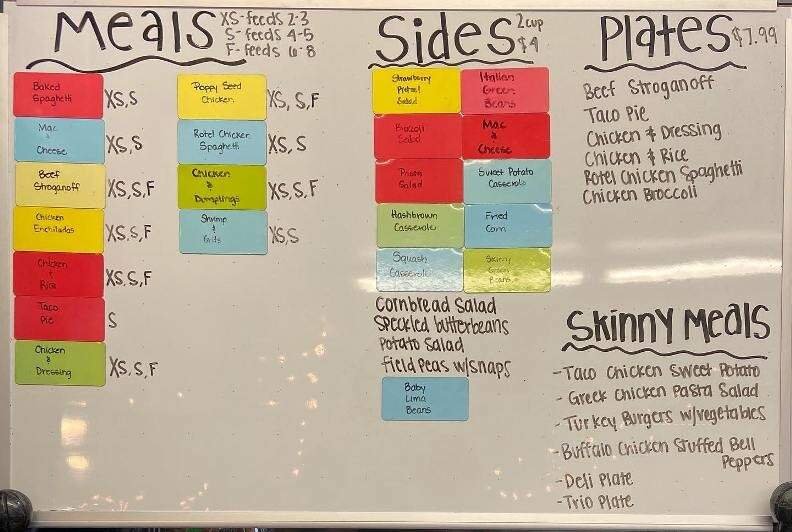 Meals
XS-feeds 2-3
S-feeds 4-5
F-feeds 6-8
Baked
Spaghetti
XS, S
Mac
&
Cheese
XS, S
Beef
Stroganoff
XS, S, F
Chicken
Enchiladas
XS, S, F
Chicken
&
Rice
XS, S, F
Taco
Pie
S
Chicken
&
Dressing
XS, S, F
Poppy Seed
Chicken
XS, S, F
Rotel Chicken
Spaghetti
XS, S
Chicken
&
Dumplings
XS, S, F
Shrimp
&
Grits
XS, S
Sides
2 cup
$4
Strawberry
Pretzel
Salad
Italian
Green
Beans
Broccoli
Salad
Mac
&
Cheese
Salad
Sweet Potato
Casserole
Hashbrown
Casserole
Fried
Corn
Squash
Casserole
Skinny
Green
Beans
Cornbread Salad
Speckled butterbeans
Potato Salad
field peas w/snaps
Baby
Lima
Beans
Plates
$7.99
Beef Stroganoff
Taco Pie
Chicken & Dressing
Chicken & Rice
Rotel Chicken Spaghetti
Chicken Broccoli
Skinny Meals
-Taco Chicken Sweet Potato
-Greek Chicken Pasta Salad
-Turkey Burgers w/vegetables
-Buffalo Chicken Stuffed Bell
Peppers
-Deli Plate
-Trio Plate